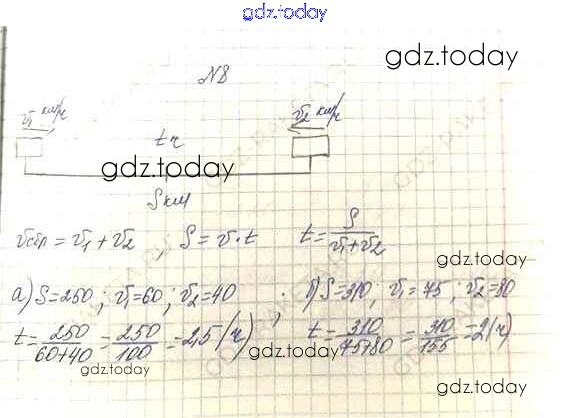 gdz.today
№8
gdz.today
v₁ км/ч v₂ км/ч
t ч
gdz.today
S км
vсбл = v₁ + v₂ ; S = v · t t = S/(v₁+v₂)
gdz.today
а) S=250 ; v₁=60 ; v₂=40 ; б) S=310, v₁=75 ; v₂=80
gdz.today
t = 250/(60+40) = 250/100 = 2,5 (ч) t = 310/(75+80) = 310/155 = 2 (ч)
gdz.today
gdz.today